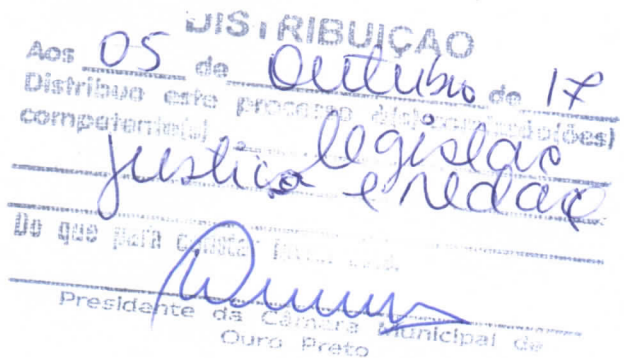 DISTRIBUIÇÃO
Aos 05 de Outubro de 17
Distribuo este processo à(s) comissão(ões)
competente(s) legislac
justica e redac
Do que para constar
Presidente da Câmara Municipal de
Ouro Preto